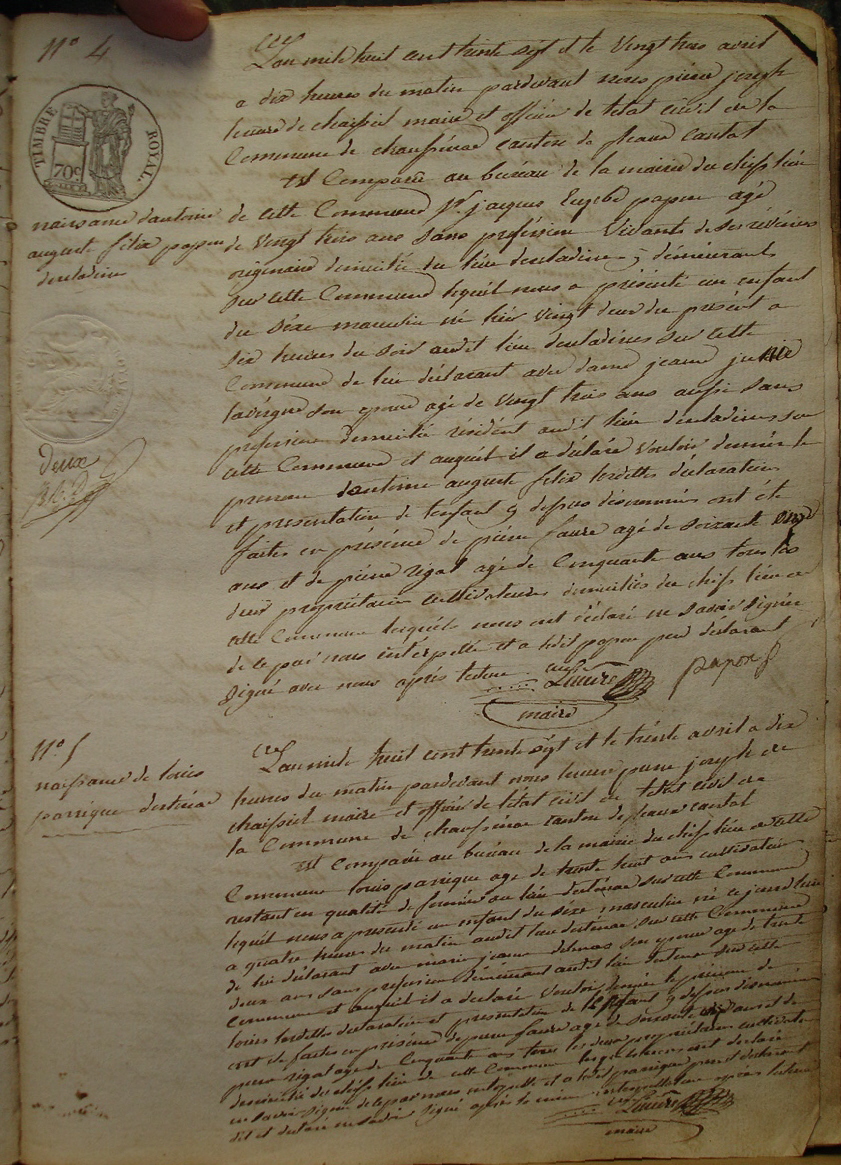 N° 4
TIMBRE ROYAL
70 c
naissance d'antoine
auguste felix papon
denladine
deux
L'an mile huit cent trente sept et le Vingt trois avril
a dix heures du matin pardevant nous pierre joseph
de chaissiel maire et officier de letat civil de la
Commune de chaussenac canton de pleaux cantal
Est Comparu au bureau de la mairie du chef lieu
de cette Commune Sr jacques papon agé
de Vingt trois ans Sans profession Vivants de ses révénus
originaire domicilié du lieu ; démeurant
sur cette Commune lequel nous a présénté un enfant
du séxe masculin né hier Vingt deux du présént a
Six heures du Soir audit lieu sur cette
Commune de lui déclarant avec dame jeanne
lavergne son epouse agé de Vingt trois ans aussi sans
profession domicilié résident audit lieu sur
cette Commune et auquel il a déclaré Vouloir donnér le
prenom dantoine auguste felix lesdittes déclaration
et présentation de lenfant y dessus dénommés ont été
faites en présénce de pierre faure agé de soixante
ans et de pierre rigal agé de Cinquante ans tous les
deux propriétaires cultivateurs domiciliés du chef lieu de
cette Commune lesquels nous ont déclaré ne savoir signér
de ce par nous intérpéllé et a ledit papon pere déclarant
Signé avec nous après lecture
papon
maire
N° 5
naissance de louis
parrique
L'an mile huit cent trente sépt et le trénte avril a dix
heures du matin pardevant nous pierre joseph de
chaissiel maire et officier de l'état civil de
la Commune de chaussenac canton de pleaux cantal
Est Comparu au bureau de la mairie du chef lieu de cette
Commune louis parrique agé de trente huit ans cultivateur
restant en qualité de fermier au lieu sur cette Commune
lequél nous a présénté un enfant du séxe masculin né ce jourd'hui
a quatre heures du matin audit lieu sur cette Commune
de lui déclarant avec marie jeanne delmas son epouse agé de trente
deux ans sans profession démeurant audit lieu sur cette
Commune et auquél il a déclaré Vouloir donnér le prénom de
louis lesdittes déclaration et présentation de lenfant y dessus dénommé
ont été faites en présénce de pierre faure agé de soixante ans et de
pierre rigal agé de Cinquante ans tous les deux propriétaires cultivateurs
domiciliés du chef lieu de cette Commune lesquels nous ont déclaré
ne savoir signér de ce par nous intérpéllé et a ledit parrique pere déclarant
dit et déclaré ne savoir signé après lecture
maire